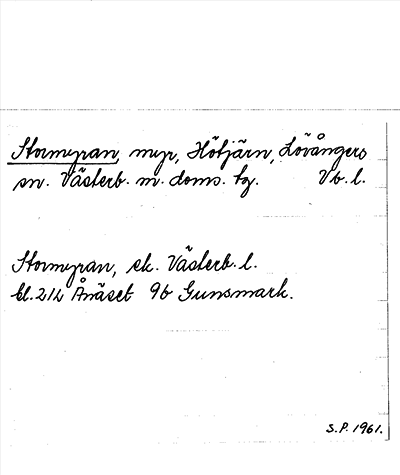 Stormyran, myr, Hötjärn, Lövångers
sn. Västerb. m. doms. tg. Vb. l.
Stormyran, ek. Västerb. l.
bl. 212 Ånäset 9b Gunsmark.
S.P. 1961.